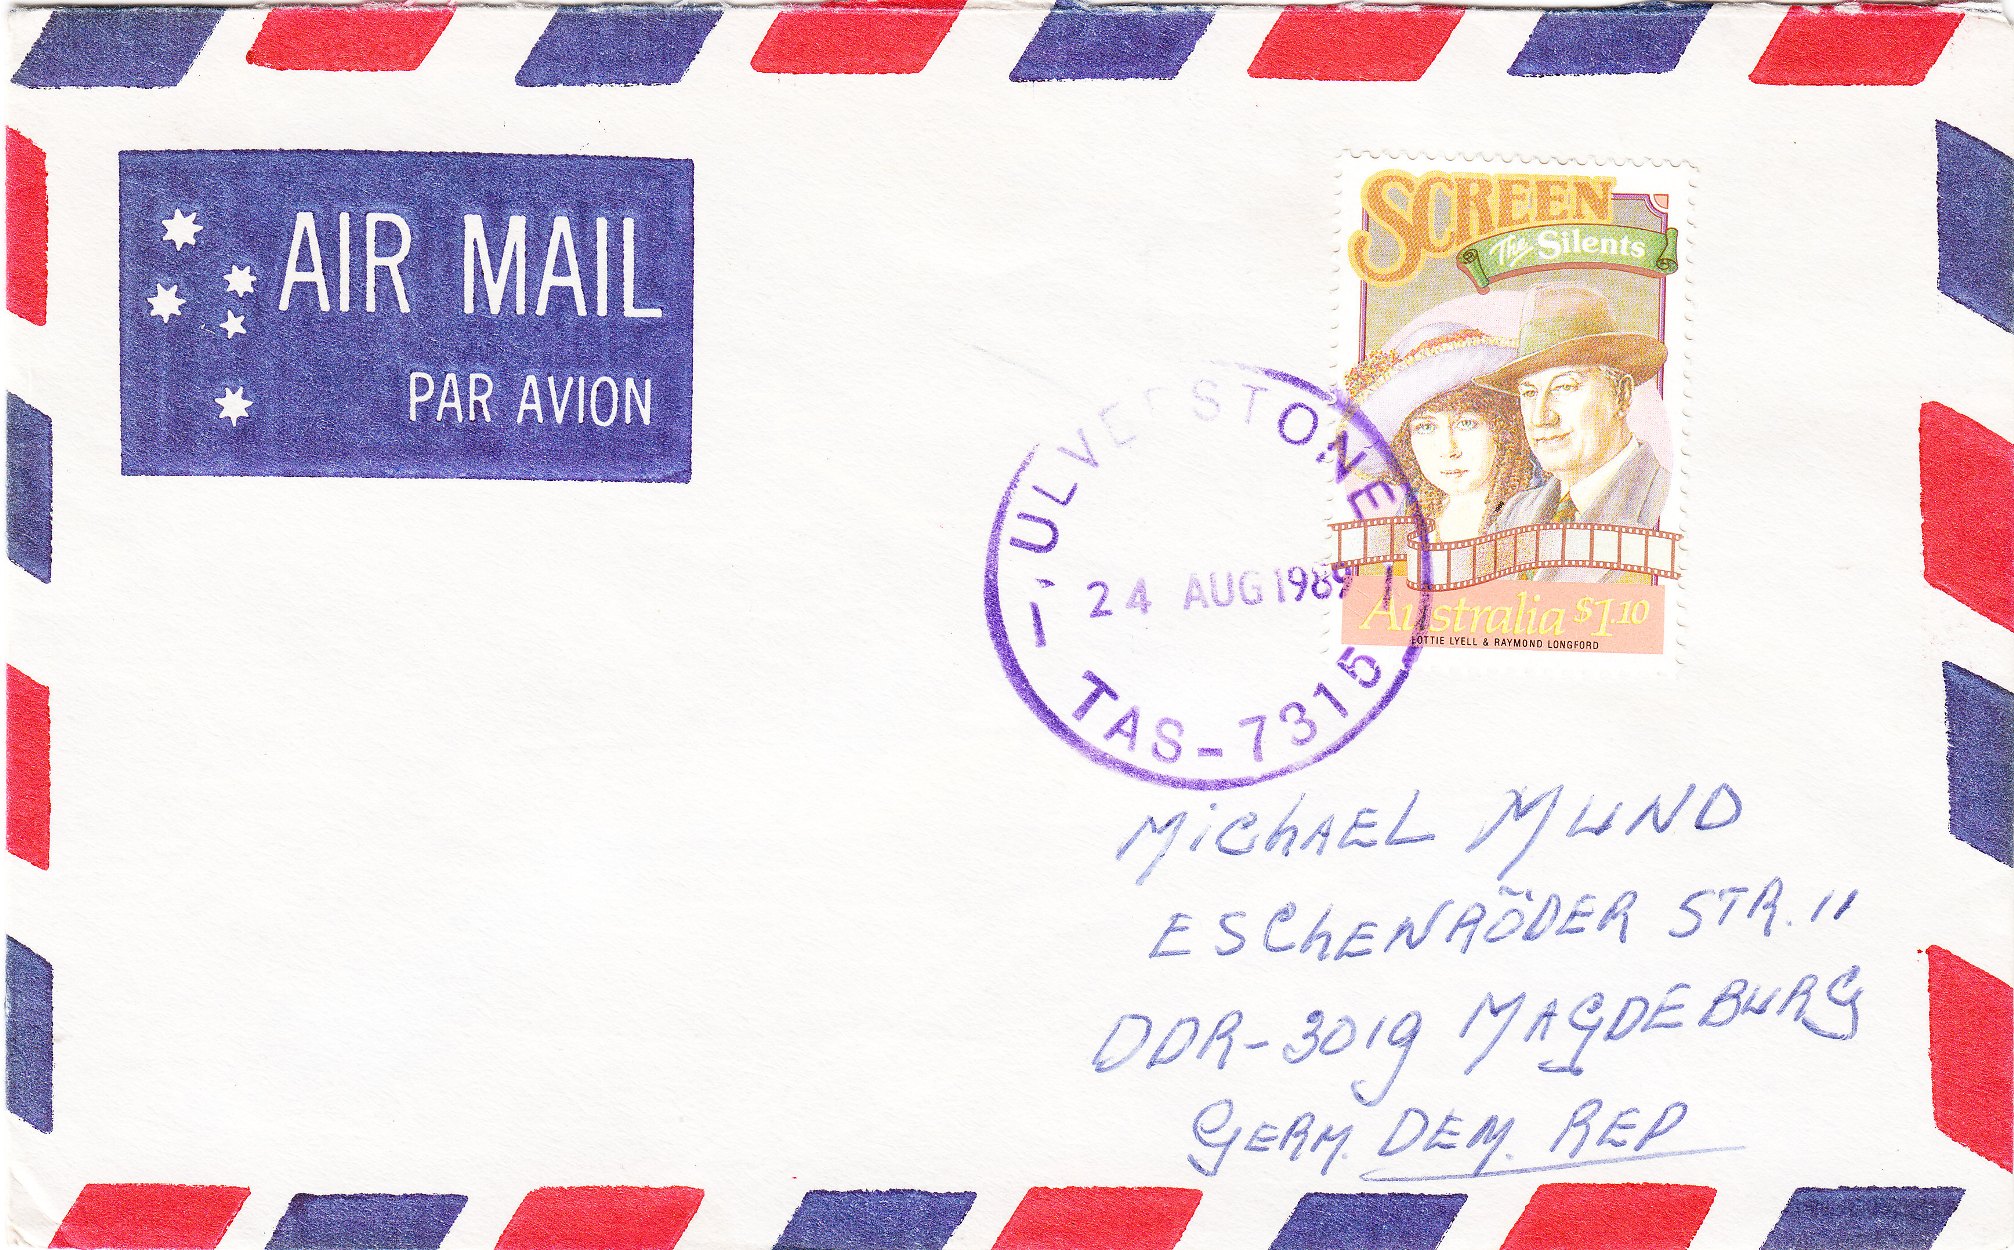 AIR MAIL
PAR AVION
SCREEN
The Silents
Australia $1.10
LOTTIE LYELL & RAYMOND LONGFORD
ULVERSTONE
24 AUG 1989
TAS-7315
MiChAEL MUND
ESChENRÖDER STR. 11
DDR-3019 MAGDEBURG
GERM. DEM. REP